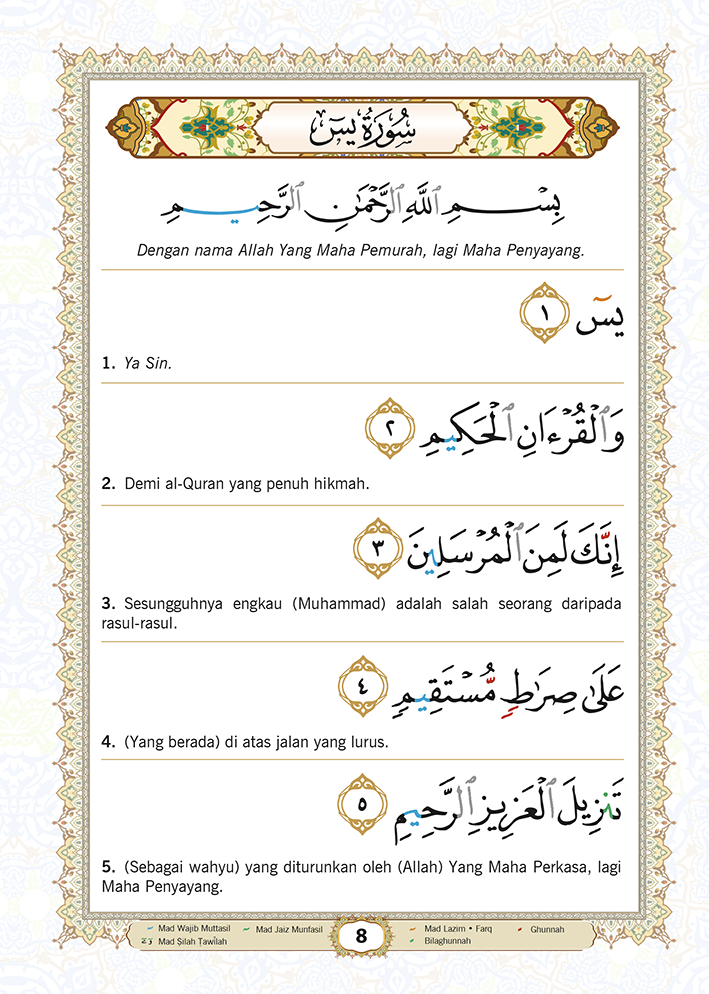 سُورَةُ يسٓ
بِسْمِ ٱللَّهِ ٱلرَّحْمَٰنِ ٱلرَّحِيمِ
Dengan nama Allah Yang Maha Pemurah, lagi Maha Penyayang.
يسٓ ١
1. Ya Sin.
وَٱلْقُرْءَانِ ٱلْحَكِيمِ ٢
2. Demi al-Quran yang penuh hikmah.
إِنَّكَ لَمِنَ ٱلْمُرْسَلِينَ ٣
3. Sesungguhnya engkau (Muhammad) adalah salah seorang daripada
rasul-rasul.
عَلَىٰ صِرَٰطٍ مُّسْتَقِيمٍ ٤
4. (Yang berada) di atas jalan yang lurus.
تَنزِيلَ ٱلْعَزِيزِ ٱلرَّحِيمِ ٥
5. (Sebagai wahyu) yang diturunkan oleh (Allah) Yang Maha Perkasa, lagi
Maha Penyayang.
Mad Wajib Muttasil Mad Jaiz Munfasil Mad Lazim • Farq Ghunnah
Mad Ṣilah Ṭawīlah 8 Bilaghunnah